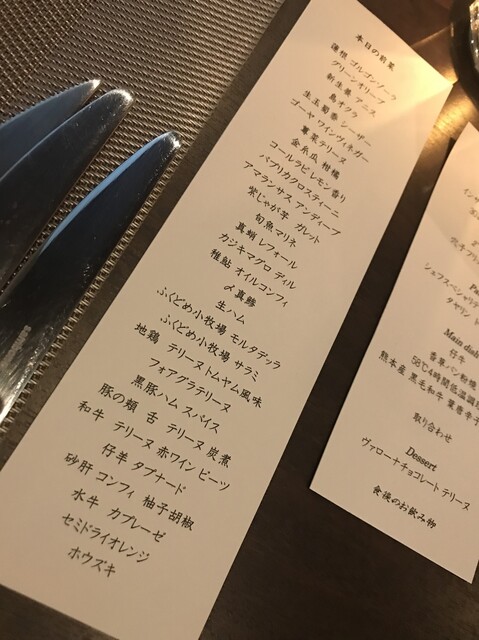 本日の前菜
蓮根 ゴルゴンゾーラ
グリーンオリーブ
新生姜 アニス
島オクラ
生玉蜀黍 レーザー
ゴーヤ ワインヴィネガー
蕈菜テリーヌ
金糸瓜 柑橘
コールラビ レモン香り
パプリカクロスティーニ
アマランサス アンディーブ
紫じゃが芋 ガレット
旬魚マリネ
真蛸 レフォール
カジキマグロ ディル
稚鮎 オイルコンフィ
〆真鯵
生ハム
ふくどめ小牧場 モルタデッラ
ふくどめ小牧場 サラミ
地鶏 テリーヌトムヤム風味
フォアグラテリーヌ
黒豚ハム スパイス
豚の頬 舌 テリーヌ 炭煮
和牛 テリーヌ 赤ワイン ビーツ
仔羊 タプナード
砂肝 コンフィ 柚子胡椒
水牛 カプレーゼ
セミドライオレンジ
ホウズキ
インサ
Pa
シェフスペシャリテ
タヤリン
Main dish
仔牛
香草パン粉焼
58℃4時間低温調
熊本産 黒毛和牛
取り合わせ
Dessert
ヴァローナチョコレート テリーヌ
食後のお飲み物